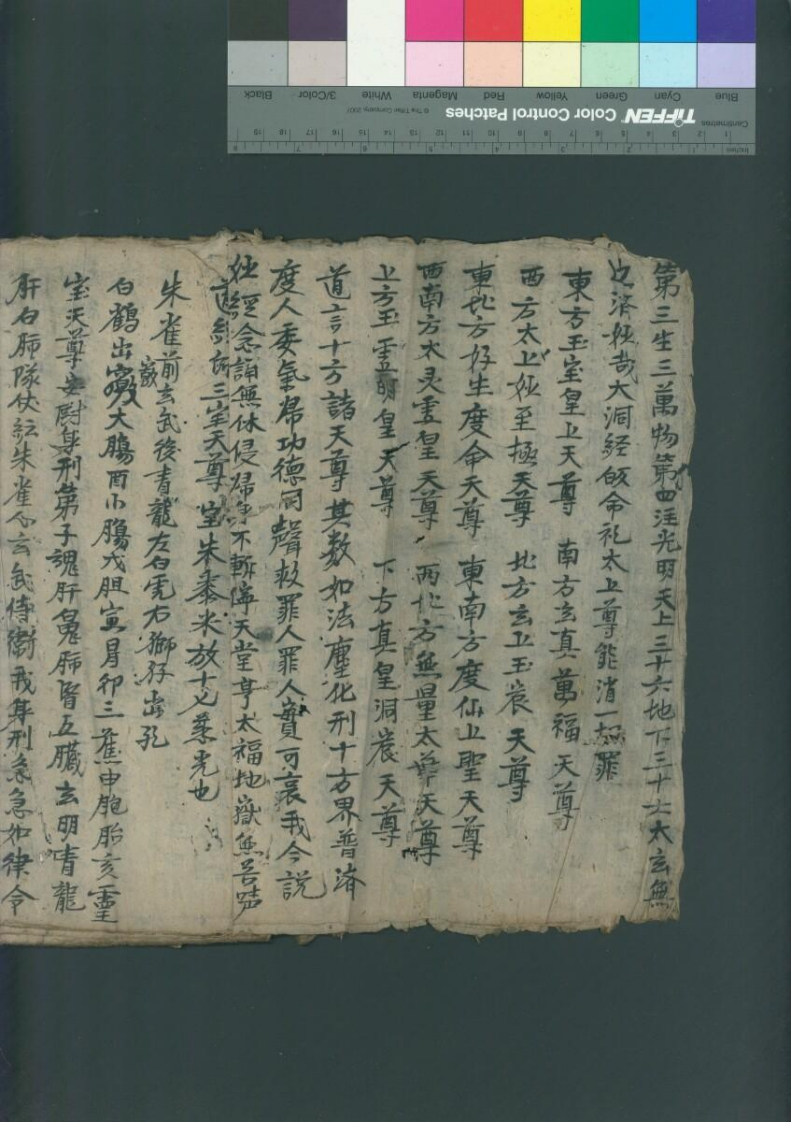 第三生三萬物第四注光明天上三十六地下三十六太玄無
邊済極哉大洞経皈命礼太上尊能消一切罪
東方玉宝皇上天尊 南方玄真萬福天尊
西方太上極至極天尊 北方玄上玉宸天尊
東北方好生度命天尊 東南方度仙上聖天尊
西南方太灵虚皇天尊 西北方無量太華天尊
上方玉虚明皇天尊 下方真皇洞宸天尊
道言十方諸天尊其数如法塵化刑十方界普済
度人委氣歸功德同聲救罪人罪人實可哀我今説
経念誦無休侵歸身不暫停天堂亨太福地嶽無苦
三宝天尊宝朱黍米放十光也
朱雀前玄武後青龍左白虎右獅仔出孔
白鶴出竅大膓酉小膓戊胆寅胃卯三蕉申胞胎亥靈
宝天尊安慰身刑弟子魂肝魄肺腎五臓玄明青龍
肝白肺隊仗紜朱雀 玄武侍衛我身刑急急如律令
Black 3/Color White Magenta Red Yellow Green Cyan Blue
TIFFEN Color Control Patches
© The Tiffen Company, 2007
Centimetres
Inches